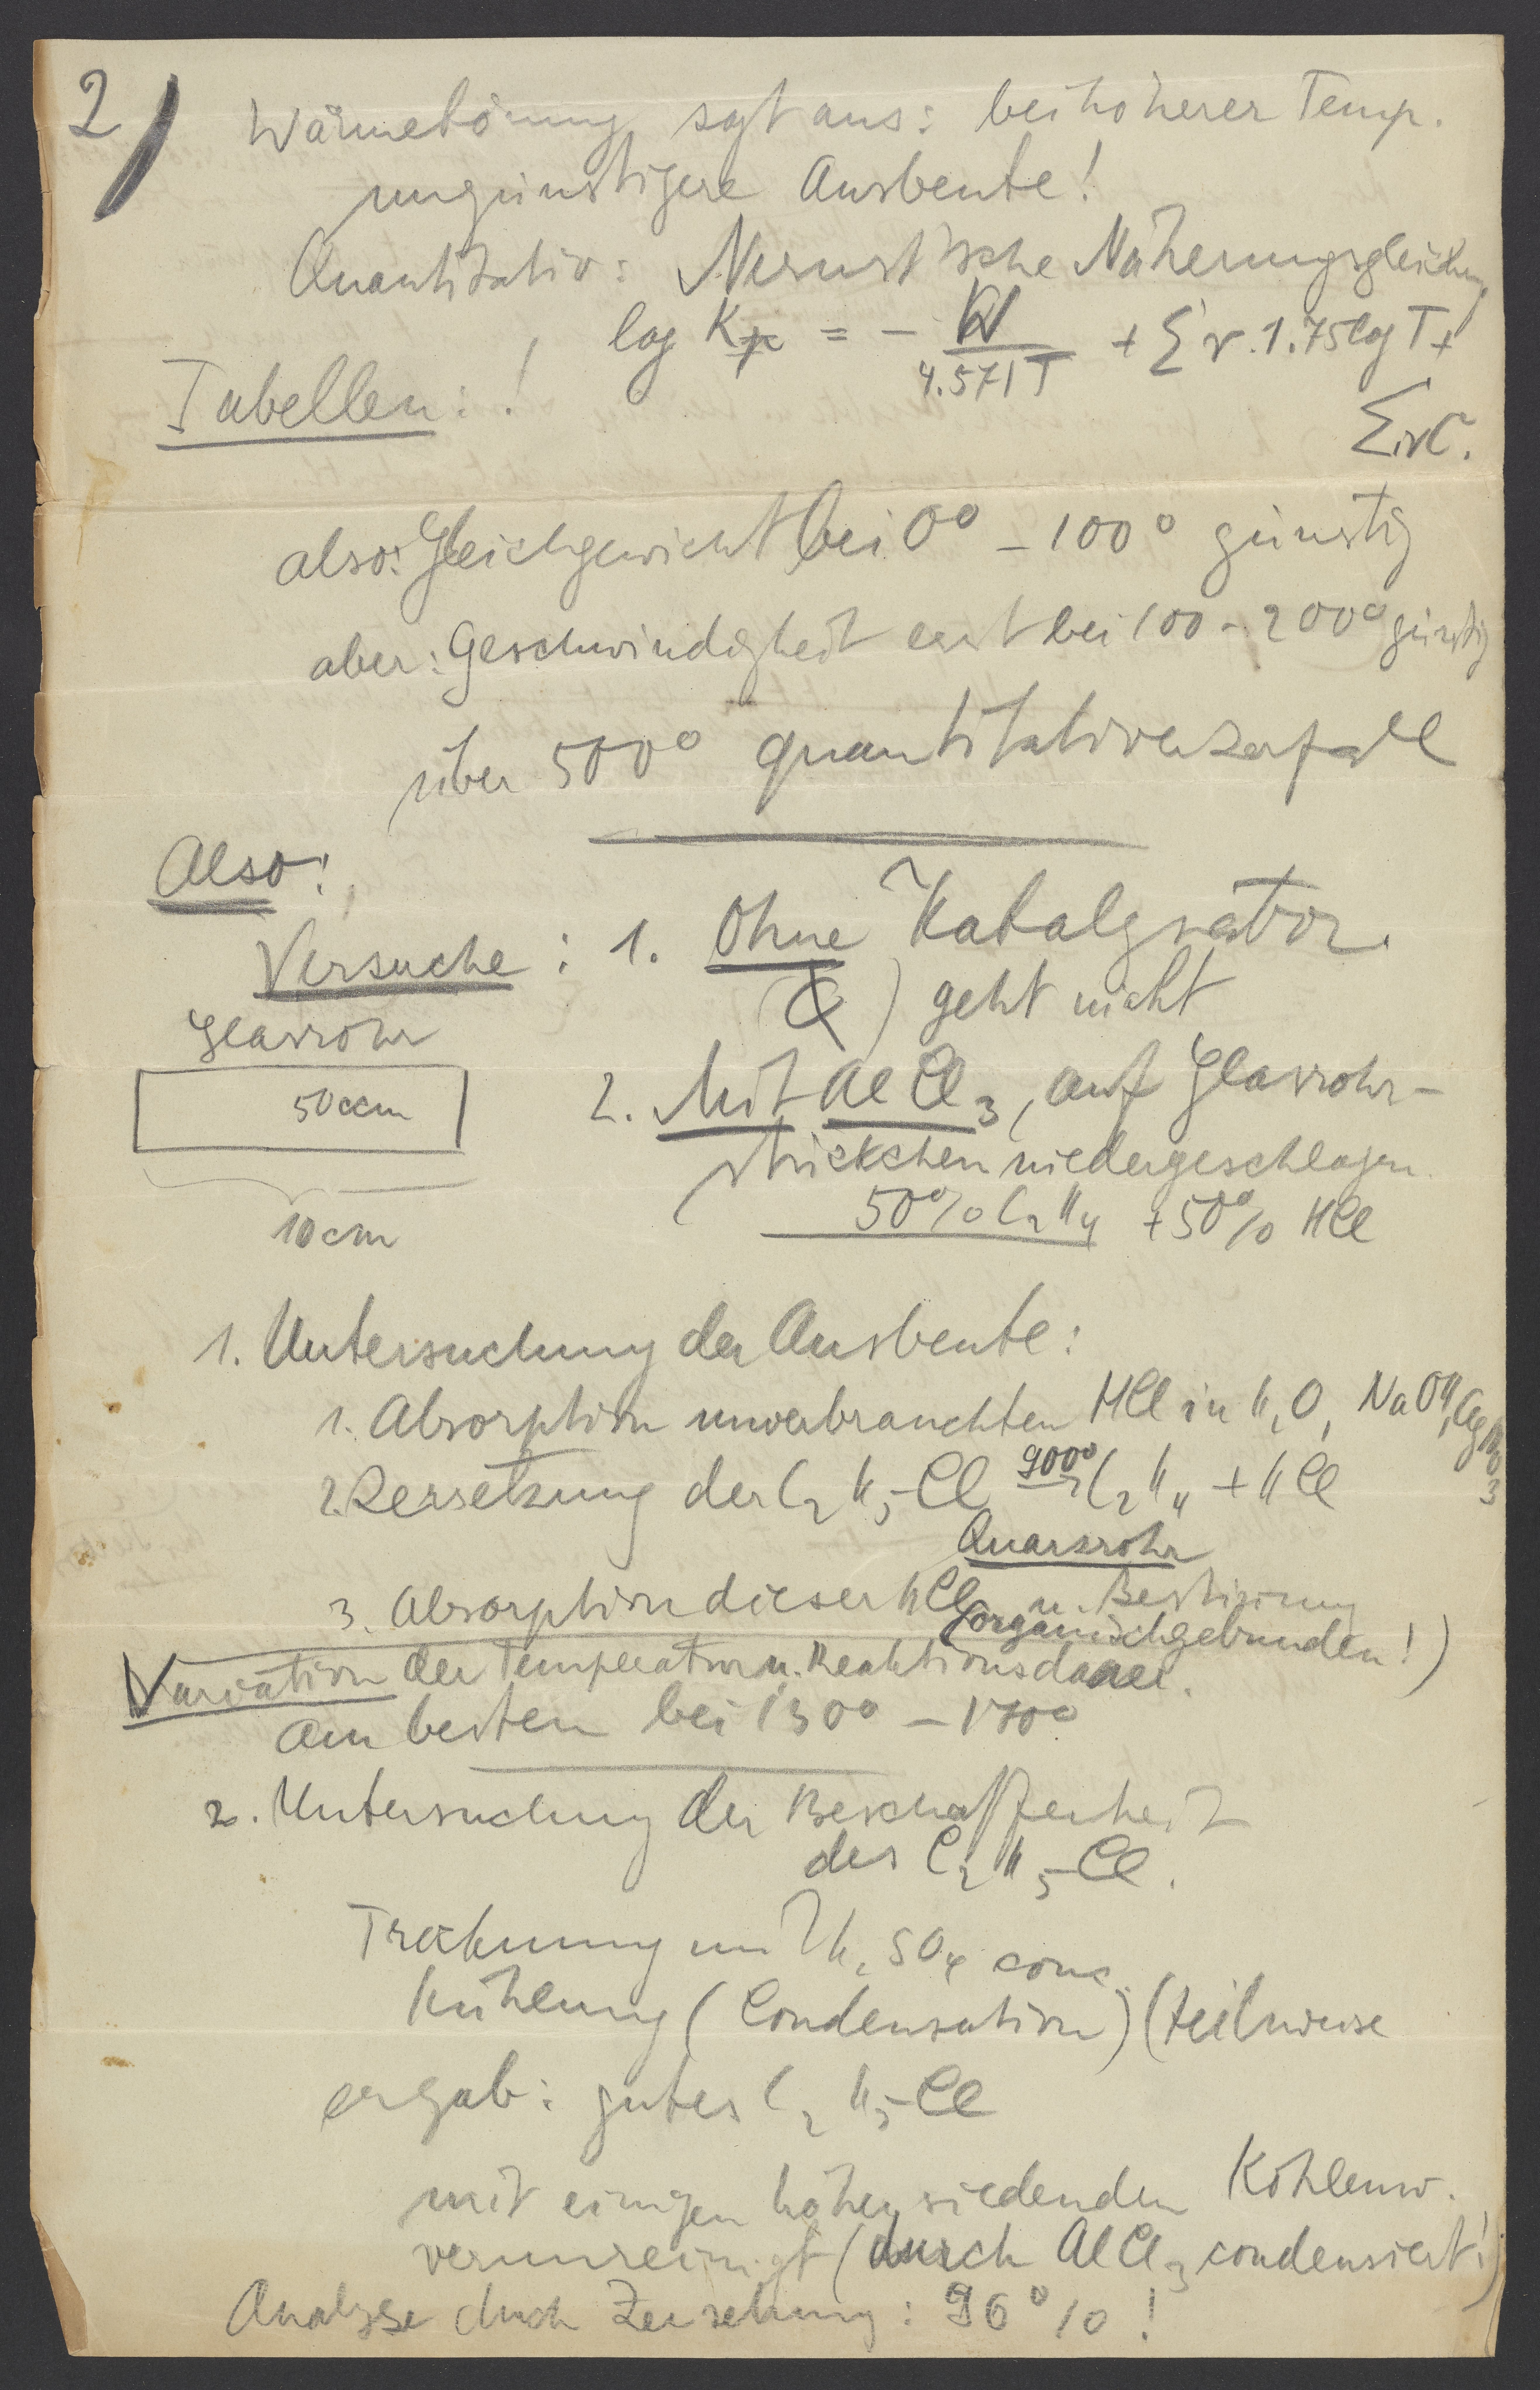 2)
Wärmetönung sagt aus: bei höherer Temp.
ungünstigere Ausbeute!
Quantitativ: Nernst'sche Näherungsgleichung
log Kp = - W / 4.571 T + Σν. 1.75 log T +
Σν C.
Tabellen: !
also: Gleichgewicht bei 0° - 100° günstig
aber: Geschwindigkeit erst bei 100 - 200° günstig
über 500° quantitativer Zerfall
Also:
Versuche: 1. Ohne Katalysator.
( ) geht nicht
Glasrohr
50 ccm
10 cm
2. Mit AlCl3, auf Glasrohr-
stückchen niedergeschlagen
50% C2H4 + 50% HCl
1. Untersuchung der Ausbeute:
1. Absorption unverbrauchten HCl in H2O, NaOH, AgNO3
2. Zersetzung der C2H5-Cl 900° → C2H4 + HCl
Quarzrohr
3. Absorption dieser HCl u. Bestimmung
(organisch gebunden!)
Variation der Temperatur u. Reaktionsdauer.
Am besten bei 130° - 170°
2. Untersuchung der Beschaffenheit
des C2H5-Cl.
Trocknung mit H2SO4 conc.
Kühlung (Condensation) (teilweise
ergab: gutes C2H5-Cl
mit einigen höher siedenden Kohlenw.
verunreinigt (durch AlCl3 condensiert!)
Analyse durch Zersetzung: 96%!